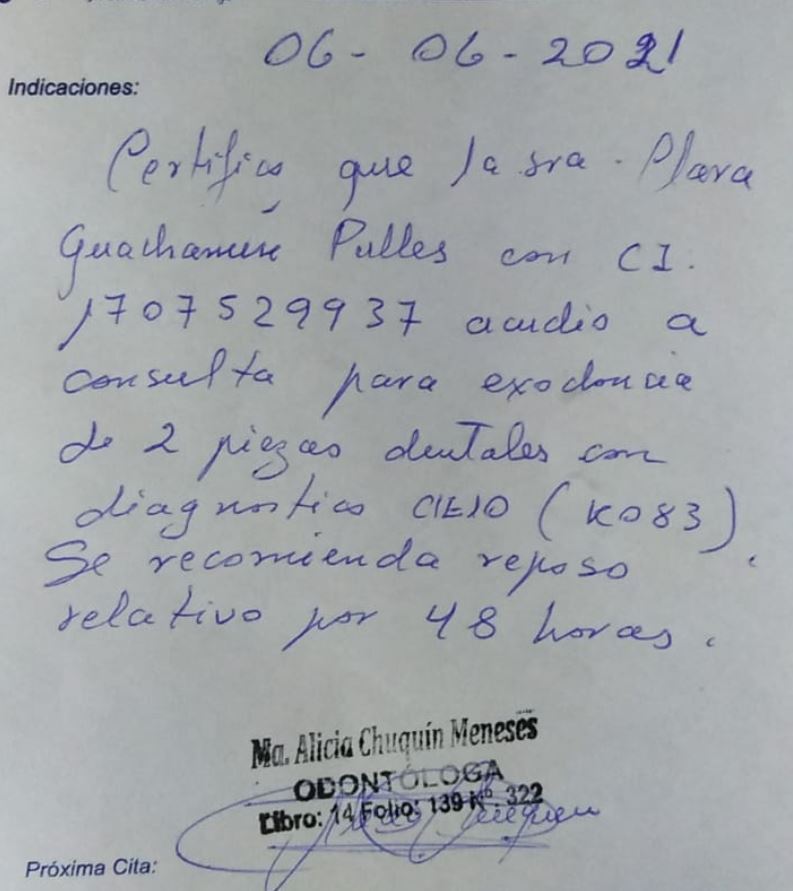 06-06-2021
Indicaciones:
Certifico que la sra. Clara
Guachamín Pulles con CI.
1707529937 acudio a
consulta para exodoncia
de 2 piezas dentales con
diagnostico CIE10 (K083).
Se recomienda reposo
relativo por 48 horas.
Ma. Alicia Chuquín Meneses
ODONTÓLOGA
Libro: 14 Folio: 139 Nº. 322
Próxima Cita: